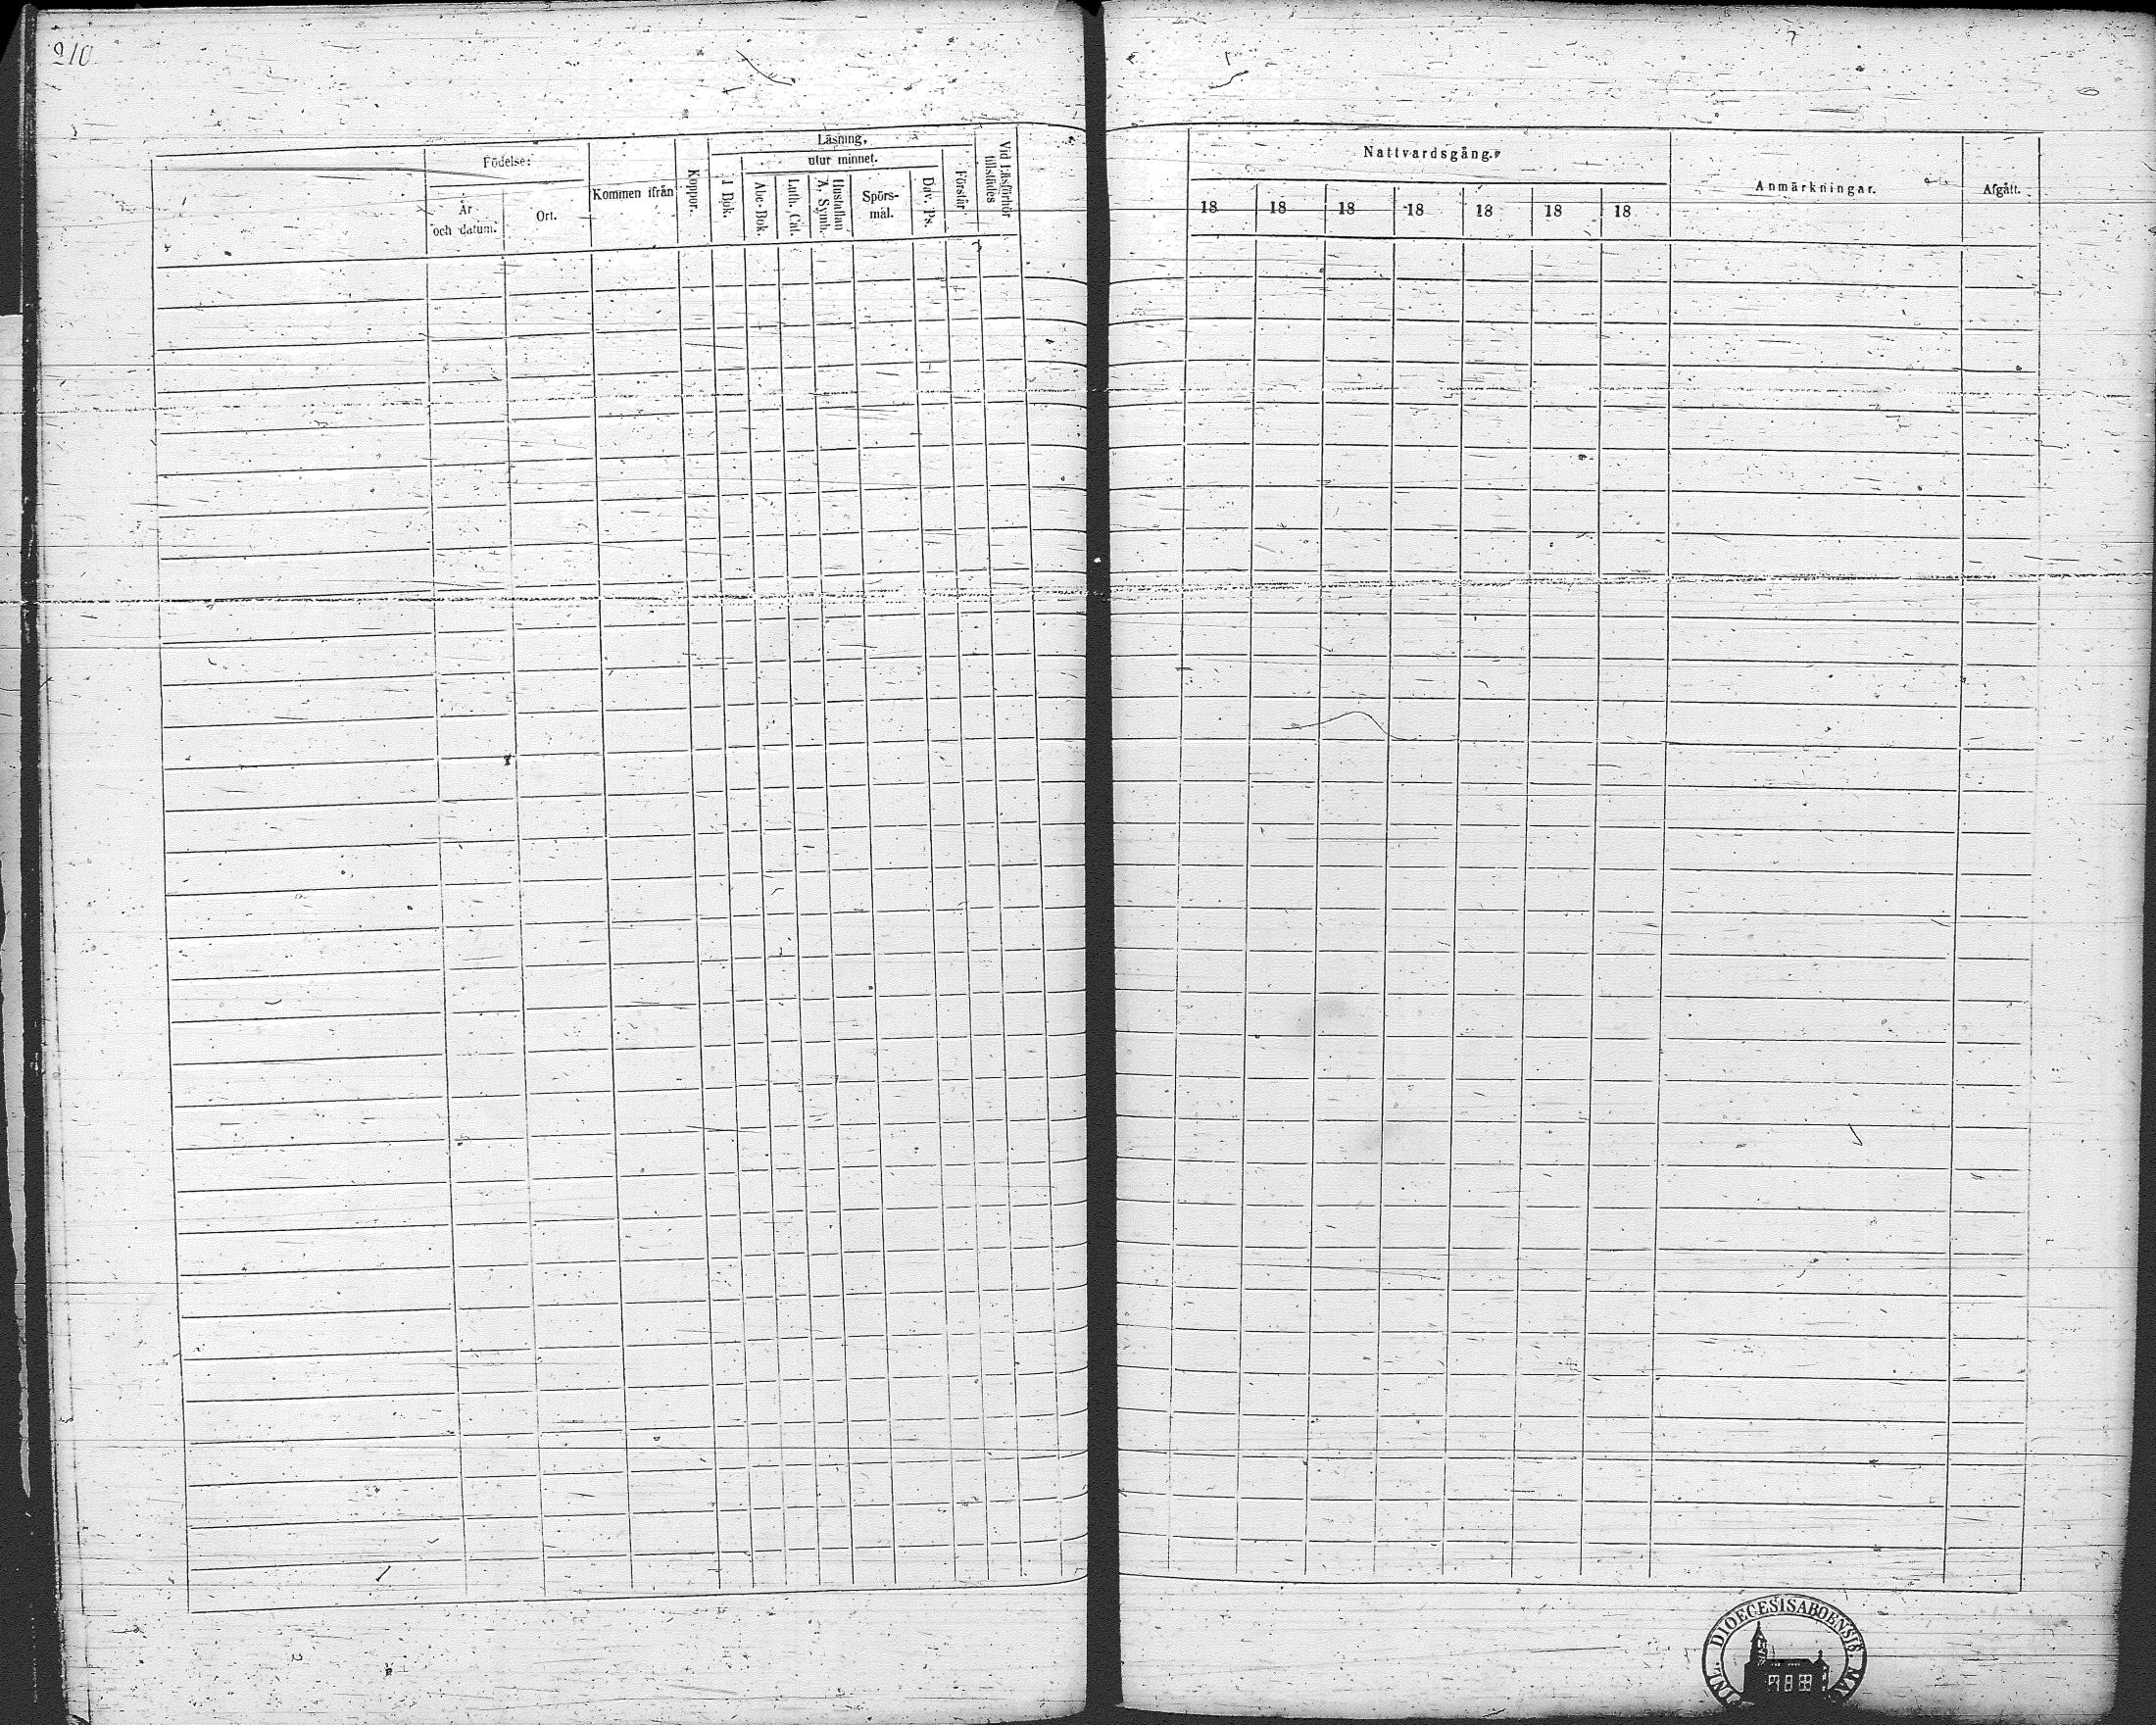 210
Födelse:
År
och datum.
Ort.
Kommen ifrån
Koppor.
Läsning,
I Bok.
utur minnet.
Abc-Bok.
Luth. Cat.
Hustaflan
A. Symb.
Spörs-
mål.
Dav. Ps.
Förstår
Vid Läsförhör
tillstädes
Nattvardsgång.
18 18 18 18 18 18 18
Anmärkningar.
Afgått.
DIOECESIS ABOENSIS